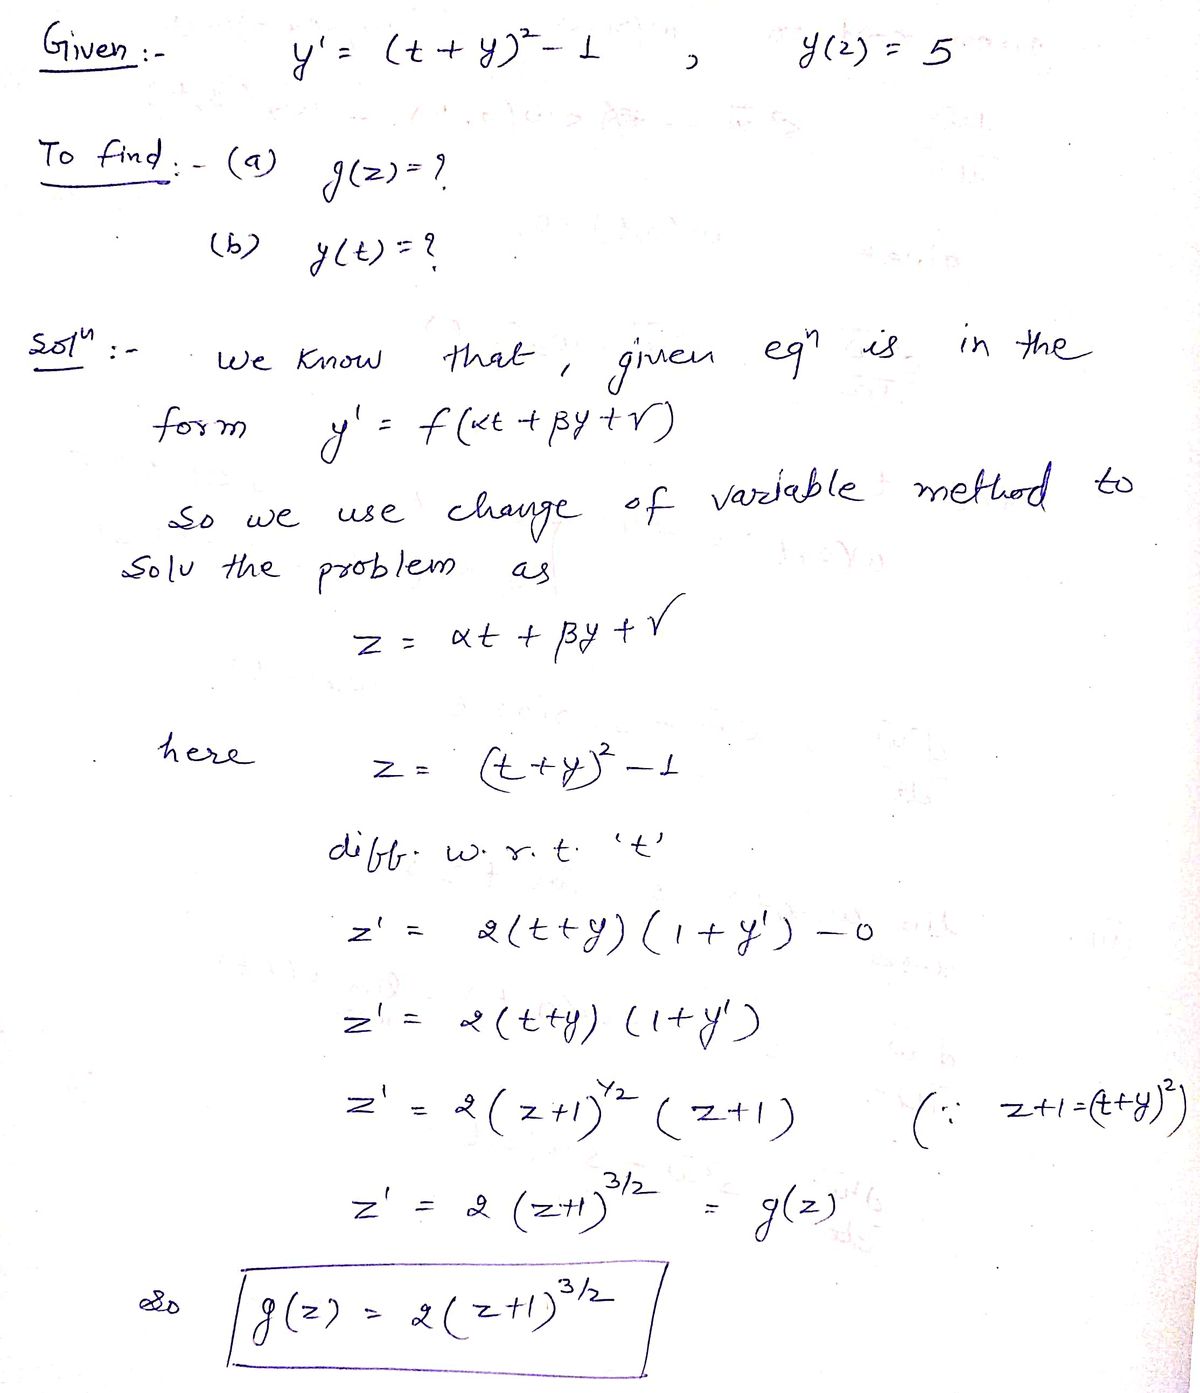 Given :- y' = (t + y)² - 1 , y(2) = 5
To find :- (a) g(z) = ?
(b) y(t) = ?
Solⁿ :- we know that , given eqⁿ is in the
form y' = f(αt + βy + γ)
So we use change of variable method to
Solv the problem as
z = αt + βy + γ
here z = (t + y)² - 1
diff. w. r. t. 't'
z' = 2(t + y) (1 + y') - 0
z' = 2(t + y) (1 + y')
z' = 2(z+1)^1/2 (z+1) (∵ z+1 = (t+y)²)
z' = 2(z+1)^3/2 = g(z)
So g(z) = 2(z+1)^3/2